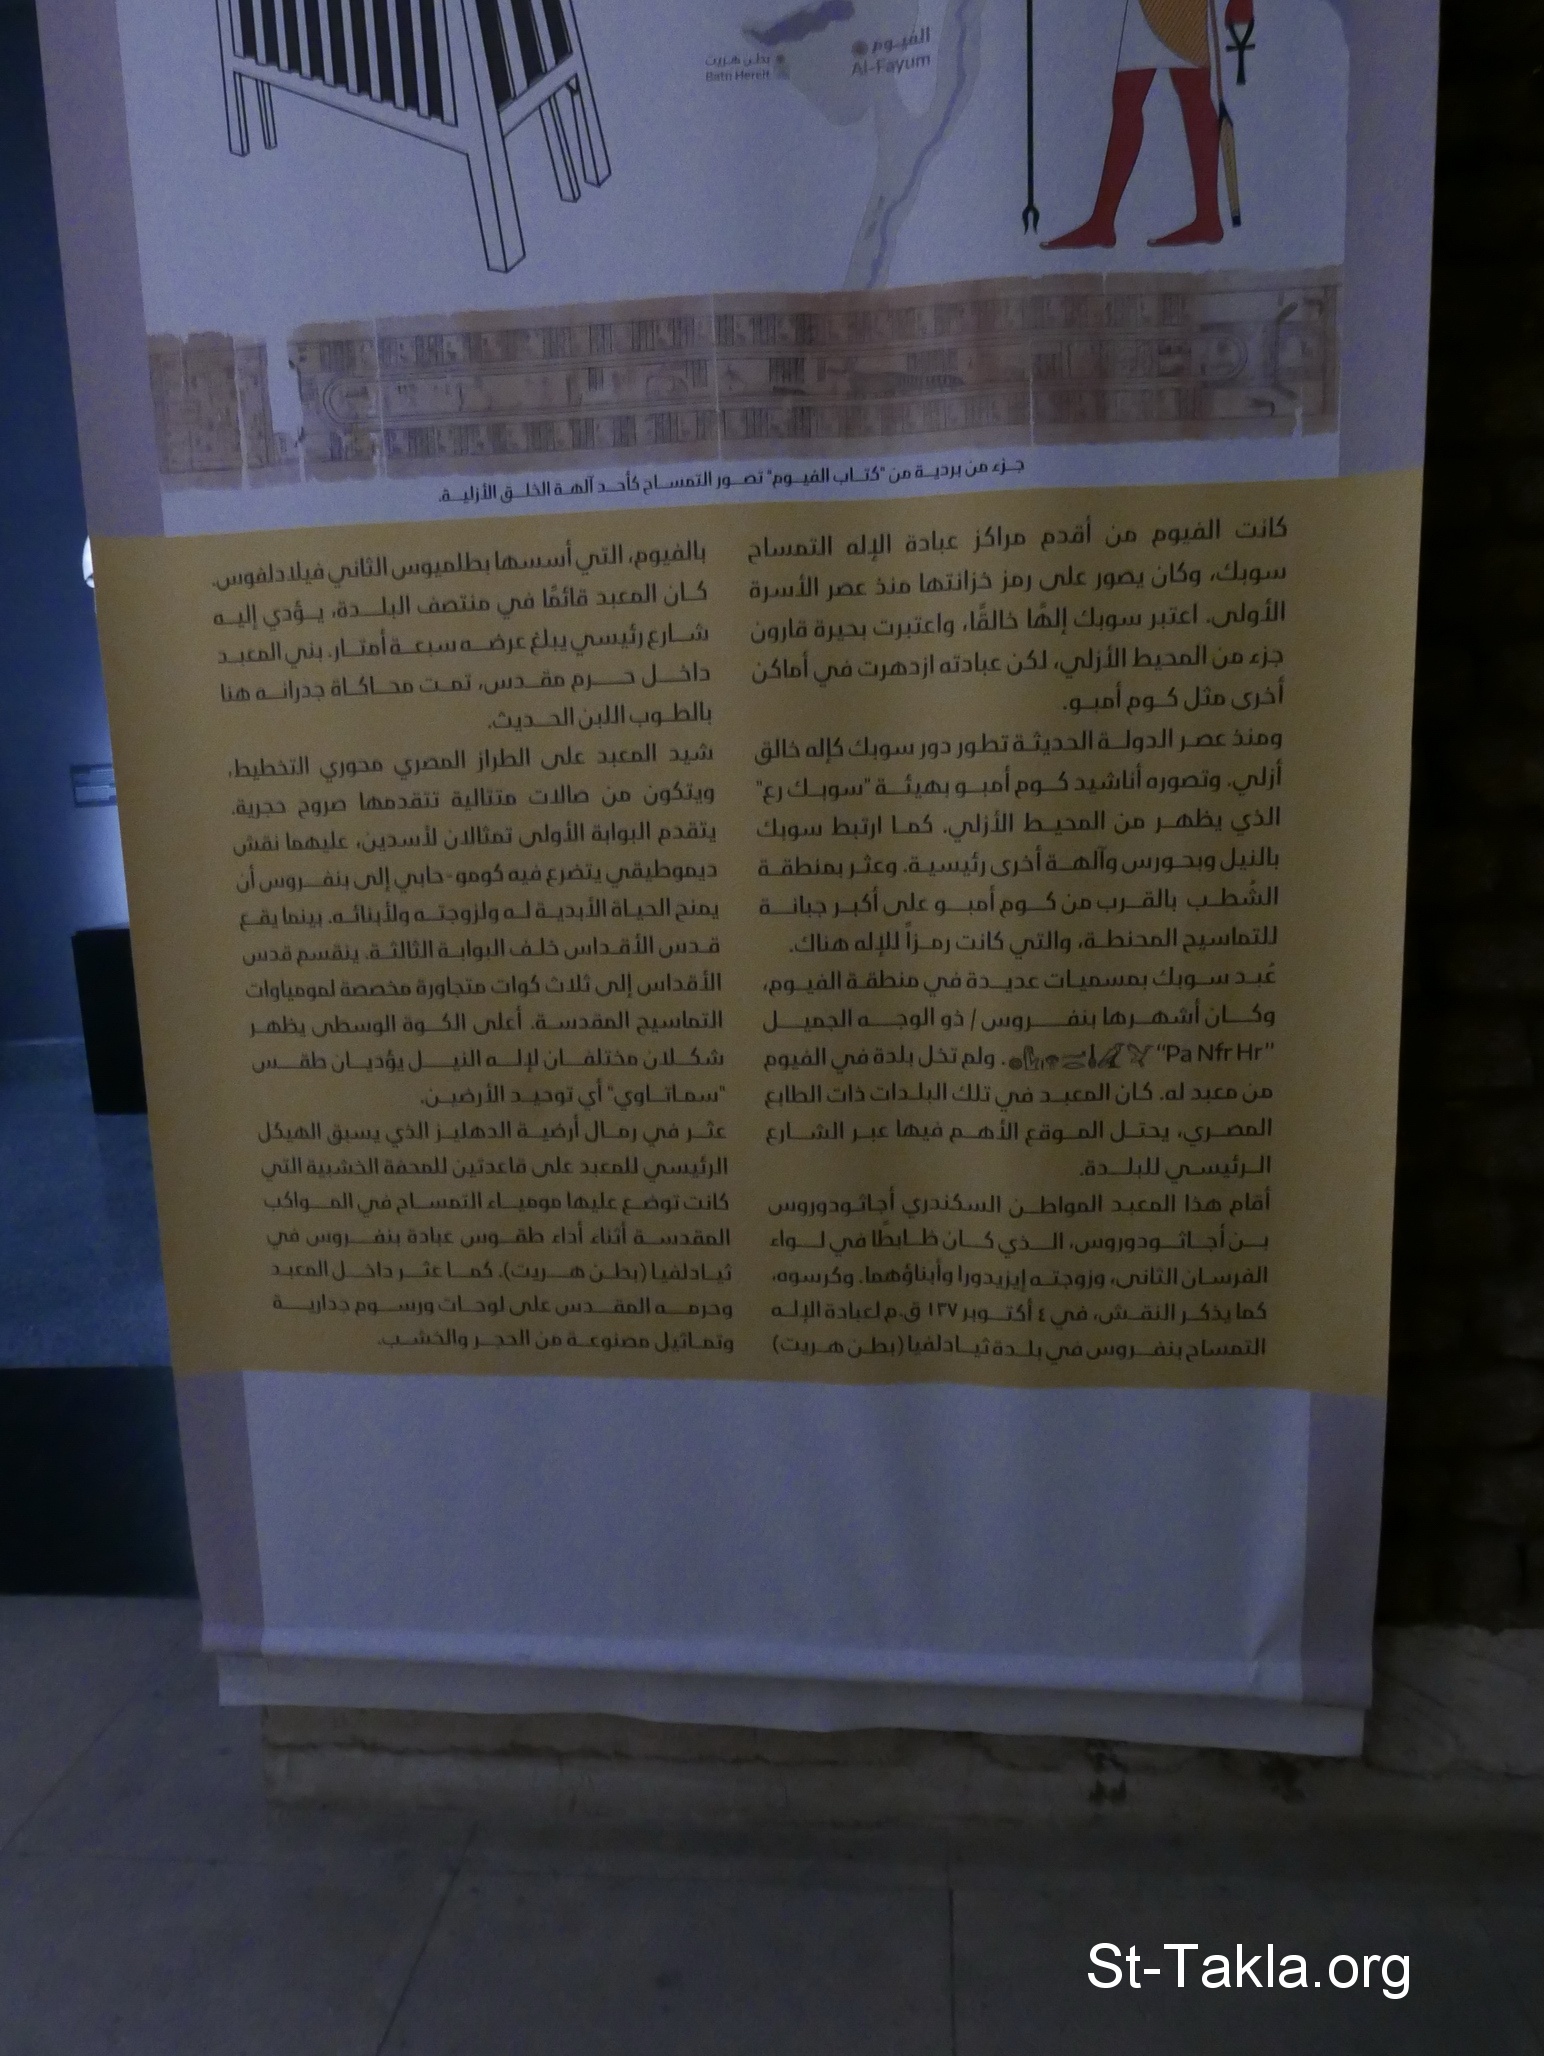 الفيوم
Al-Fayum
بطن هريت
Batn Hereit
جزء من بردية من "كتاب الفيوم" تصور التمساح كأحد آلهة الخلق الأزلية.
كانت الفيوم من أقدم مراكز عبادة الإله التمساح
سوبك، وكان يصور على رمز خزانتها منذ عصر الأسرة
الأولى. اعتبر سوبك إلهًا خالقًا، واعتبرت بحيرة قارون
جزء من المحيط الأزلي، لكن عبادته ازدهرت في أماكن
أخرى مثل كوم أمبو.
ومنذ عصر الدولة الحديثة تطور دور سوبك كإله خالق
أزلي. وتصوره أناشيد كوم أمبو بهيئة "سوبك رع"
الذي يظهر من المحيط الأزلي. كما ارتبط سوبك
بالنيل وبحورس وآلهة أخرى رئيسية. وعثر بمنطقة
الشُطب بالقرب من كوم أمبو على أكبر جبانة
للتماسيح المحنطة، والتي كانت رمزاً للإله هناك.
عُبد سوبك بمسميات عديدة في منطقة الفيوم،
وكان أشهرها بنفروس/ ذو الوجه الجميل
"Pa Nfr Hr" . ولم تخل بلدة في الفيوم
من معبد له. كان المعبد في تلك البلدات ذات الطابع
المصري، يحتل الموقع الأهم فيها عبر الشارع
الرئيسي للبلدة.
أقام هذا المعبد المواطن السكندري أجاثودوروس
بن أجاثودوروس، الذي كان ظابطًا في لواء
الفرسان الثاني، وزوجته إيزيدورا وأبناؤهما. وكرسوه،
كما يذكر النقش، في ٤ أكتوبر ١٣٧ ق.م لعبادة الإله
التمساح بنفروس في بلدة ثيادلفيا (بطن هريت)
بالفيوم، التي أسسها بطلميوس الثاني فيلادلفوس.
كان المعبد قائمًا في منتصف البلدة، يؤدي إليه
شارع رئيسي يبلغ عرضه سبعة أمتار. بني المعبد
داخل حرم مقدس، تمت محاكاة جدرانه هنا
بالطوب اللبن الحديث.
شيد المعبد على الطراز المصري محوري التخطيط،
ويتكون من صالات متتالية تتقدمها صروح حجرية.
يتقدم البوابة الأولى تمثالان لأسدين، عليهما نقش
ديموطيقي يتضرع فيه كومو-حابي إلى بنفروس أن
يمنح الحياة الأبدية له ولزوجته ولأبنائه. بينما يقع
قدس الأقداس خلف البوابة الثالثة. ينقسم قدس
الأقداس إلى ثلاث كوات متجاورة مخصصة لمومياوات
التماسيح المقدسة. أعلى الكوة الوسطى يظهر
شكلان مختلفان لإله النيل يؤديان طقس
"سماتاوي" أي توحيد الأرضين.
عثر في رمال أرضية الدهليز الذي يسبق الهيكل
الرئيسي للمعبد على قاعدتين للمحفة الخشبية التي
كانت توضع عليها مومياء التمساح في المواكب
المقدسة أثناء أداء طقوس عبادة بنفروس في
ثيادلفيا (بطن هريت). كما عثر داخل المعبد
وحرمه المقدس على لوحات ورسوم جدارية
وتماثيل مصنوعة من الحجر والخشب.
St-Takla.org